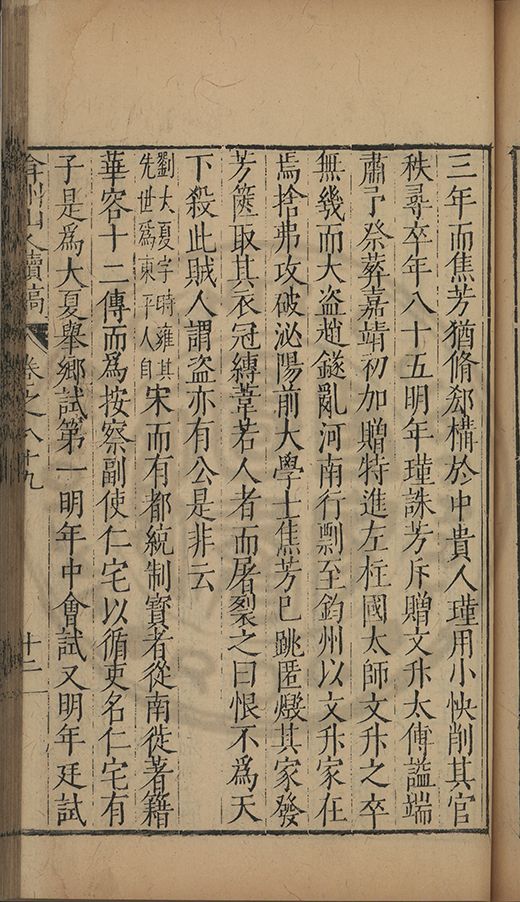 三年而焦芳猶脩郄構於中貴人瑾用小快削其官
秩尋卒年八十五明年瑾誅芳斥贈文升太傅謚端
肅予祭葬嘉靖初加贈特進左柱國太師文升之卒
無幾而大盜趙鐩亂河南行剽至鈞州以文升家在
焉捨弗攻破泌陽前大學士焦芳已跳匿燬其家發
芳篋取其衣冠縛葦若人者而屠裂之曰恨不爲天
下殺此賊人謂盜亦有公是非云
劉大夏字時雍其
先世爲東平人自
宋而有都統制寶者從南徙著籍
華容十二傳而爲按察副使仁宅以循吏名仁宅有
子是爲大夏舉鄉試第一明年中會試又明年廷試
弇州山人續稿 卷之八十九 十二